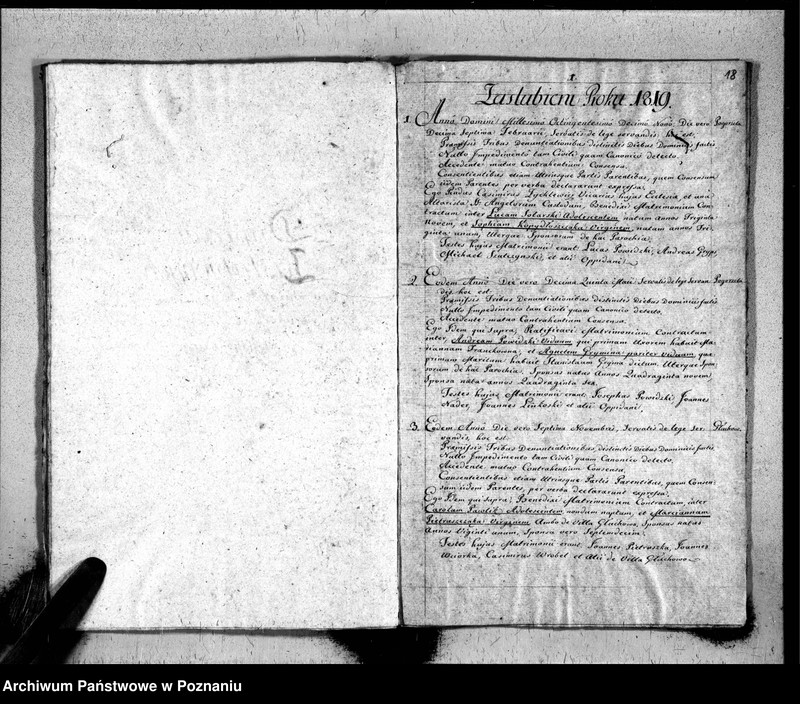 18
1.
Zaslubieni Roku 1819.
1. Anno Domini Millesimo Octingentesimo Decimo Nono Die vero
Decima Septima Februarii, Servatis de lege servandis hoc est.
Præmissis Tribus Denuntiationibus distinctis Diebus Dominicis factis
Nullo Impedimento tam Civili quam Canonico detecto.
Accedente mutuo Contrahentium Consensu.
Consentientibus etiam Utriusque Partis Parentibus, quem Consensum
iidem Parentes per verba declararunt expressa.
Ego Casimirus Vicarius hujus Ecclesiæ, et una
Altarista St. Angelorum Custodum, Benedixi Matrimonium Con-
tractum inter Lucam Tolarski Adolescentem natum annos Triginta
Novem, et Sophiam Virginem, natam annos Tri-
ginta unum, Uterque Sponsorum de hac Parochia,
Testes hujus Matrimonii erant Lucas Powidzki, Andreas
Michael et alii Oppidani.
2. Eodem Anno Die vero Decima Quinta Maii Servatis de lege Servan-
dis hoc est.
Præmissis Tribus Denuntiationibus distinctis Diebus Dominicis factis
Nullo Impedimento tam Civili quam Canonico detecto.
Accedente mutuo Contrahentium Consensu.
Ego Idem qui supra, Ratificavi Matrimonium Contractum
inter Andream Powidzki Viduum qui primam Uxorem habuit Ma-
riannam et Agnetem Grymina pariter Viduam que
primum Maritum habuit Stanislaum Gryma dictum. Uterque Spon-
sorum de hac Parochia, Sponsus natus Annos Quadraginta novem
Sponsa nata annos Quadraginta sex.
Testes hujus Matrimonii erant Josephus Powidzki Joannes
Nader, Joannes et alii Oppidani.
3. Eodem Anno Die vero Septima Novembris, Servatis de lege ser- Gluchow.
vandis, hoc est
Præmissis Tribus Denuntiationibus, distinctis Diebus Dominicis factis
Nullo Impedimento tam Civili quam Canonico detecto.
Accedente mutuo Contrahentium Consensu.
Consentientibus etiam Utriusque Partis Parentibus, quem Consen-
sum iidem Parentes, per verba declararunt expressa.
Ego Idem qui supra, Benedixi Matrimonium Contractum, inter
Carolum Pawlik Adolescentem nondum nuptum, et Mariannam
Virginem Ambo de Villa Gluchowo, Sponsus natus
Annos Viginti unum, Sponsa vero Septemdecim.
Testes hujus Matrimonii erant Joannes Pietraszka, Joannes
Wiorka, Casimirus Wrobel et Alii de Villa Gluchowo
Archiwum Państwowe w Poznaniu